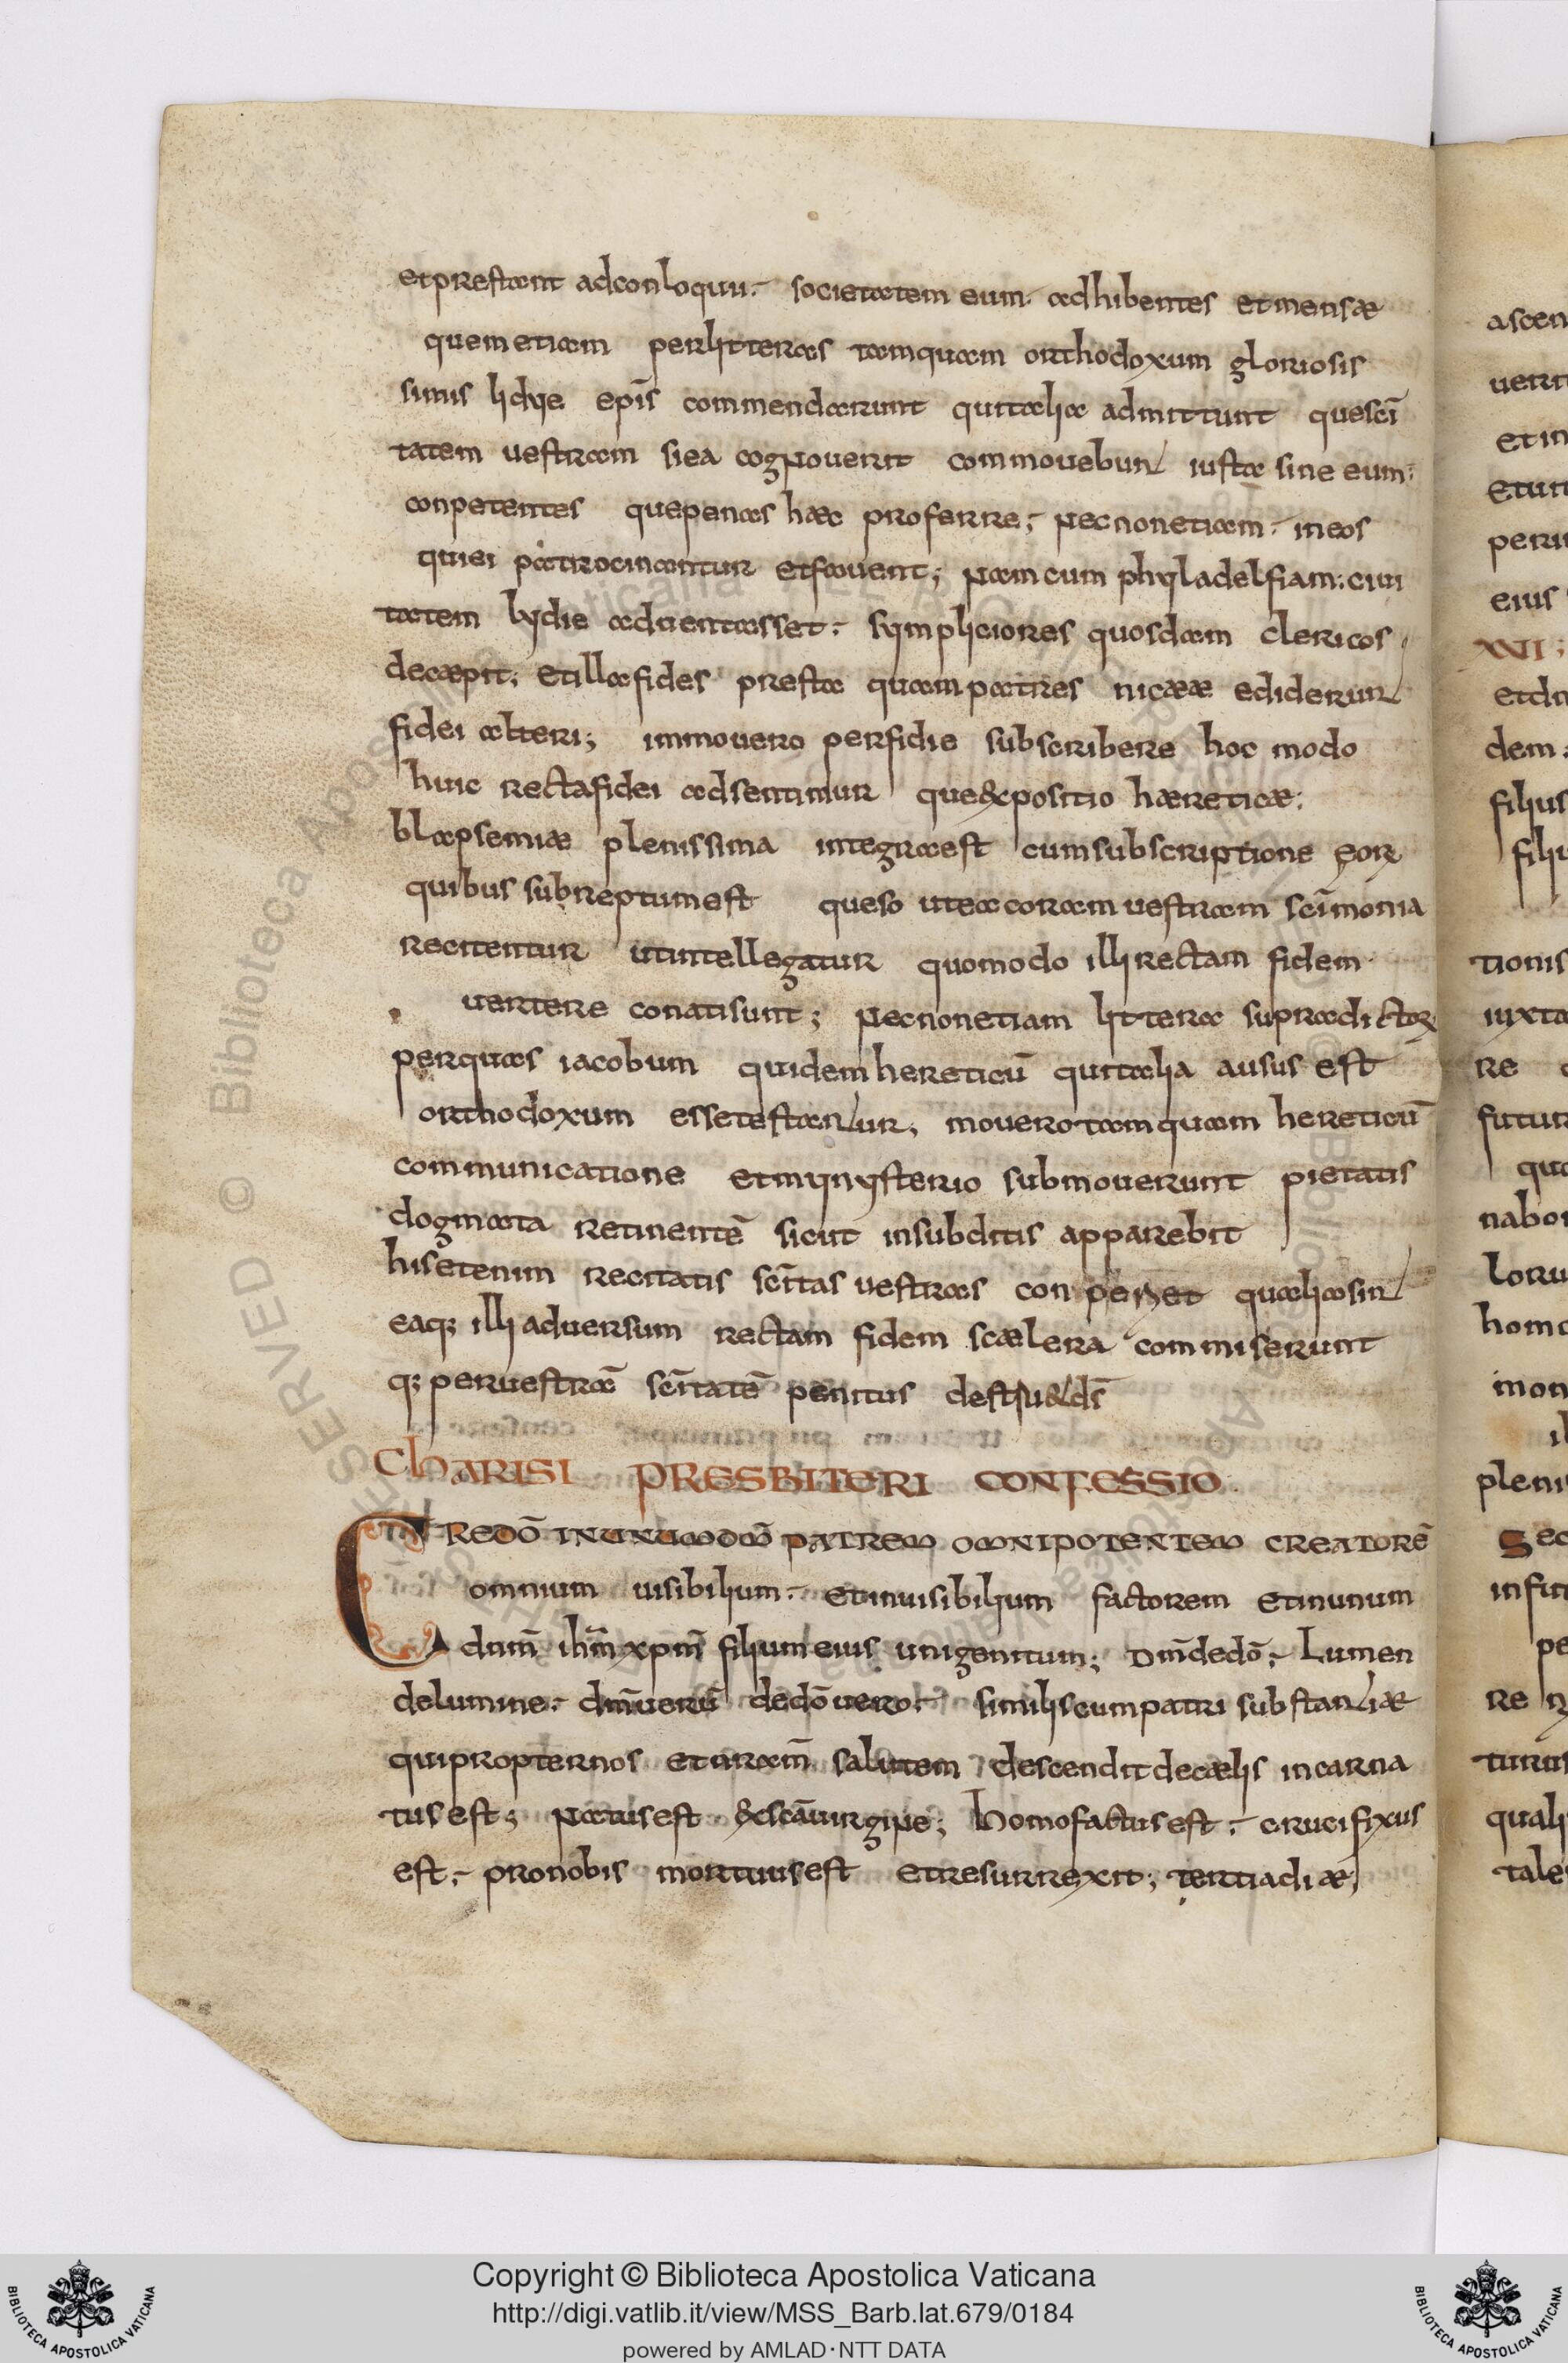 et prestant ad conloquii. societatem eum. adhibentes et mensæ
quem etiam per litteras tamquam orthodoxum gloriosis
simis lidye ep̄is commendarunt qui talia admittunt que sc̄i
tatem uestram si ea cognouerit commouebunt iusta sine eum.
conpetentes que penas hæc proferre; nec non etiam. in eos
qui ei patrocinantur et fauent; nam cum phyladelfiam. ciui
tatem lydie aduentasset. sympliciores quosdam clericos
decæpit. et illa fides presta quam patres nicææ ediderunt
fidei alteri; immo uero perfidie subscribere hoc modo
huic recta fidei adsentimur que expositio hæreticæ.
blapsemiæ plenissima integra est cum subscriptione eorum
quibus subreptum est queso ut ea coram uestram sc̄imonia
recitentur ut intellegatur quomodo illi rectam fidem
uertere conati sunt; nec non etiam littera supradictor
per quas iacobum quidem hereticū qui talia ausus est
orthodoxum esse testantur, mo uero tamquam hereticū
communicatione et mynysterio submouerunt pietatis
dogmata retinentē sicut in subditis apparebit
his etenim recitatis sc̄itas uestras conperiet qualia sint
ea q; illi aduersum rectam fidem scælera commiserunt
q; per uestrā sc̄itatē penitus destruet d̄s
CHARISI PRESBITERI CONFESSIO
CREDŌ IN UNUM DM̄ PATREM OMNIPOTENTEM CREATORĒ
omnium uisibilium. et inuisibilium factorem et in unum
dnm̄ ihm̄ xpm̄ filium eius unigenitum; Dm̄ de dō. Lumen
de lumine. dm̄ uerū de dō uero. similis cum patri substantiæ
qui propter nos et nr̄am̄ salutem descendit de cælis incarna
tus est; natus est ex sc̄a uirgine; homo factus est. crucifixus
est. pro nobis mortuus est et resurrexit; tertia diæ;
ascen
uerit
et in
et uit
peru
eius
XXVI;
et dn
dem
filius
filiu
tionis
iuxta
re
futur
qua
nabo
loru
homo
mon
pleni
Sec
infin
pe
re n
turus
quali
tale
Copyright © Biblioteca Apostolica Vaticana
http://digi.vatlib.it/view/MSS_Barb.lat.679/0184
powered by AMLAD·NTT DATA
BIBLIOTECA APOSTOLICA VATICANA
BIBLIOTECA APOSTOLICA VATICANA